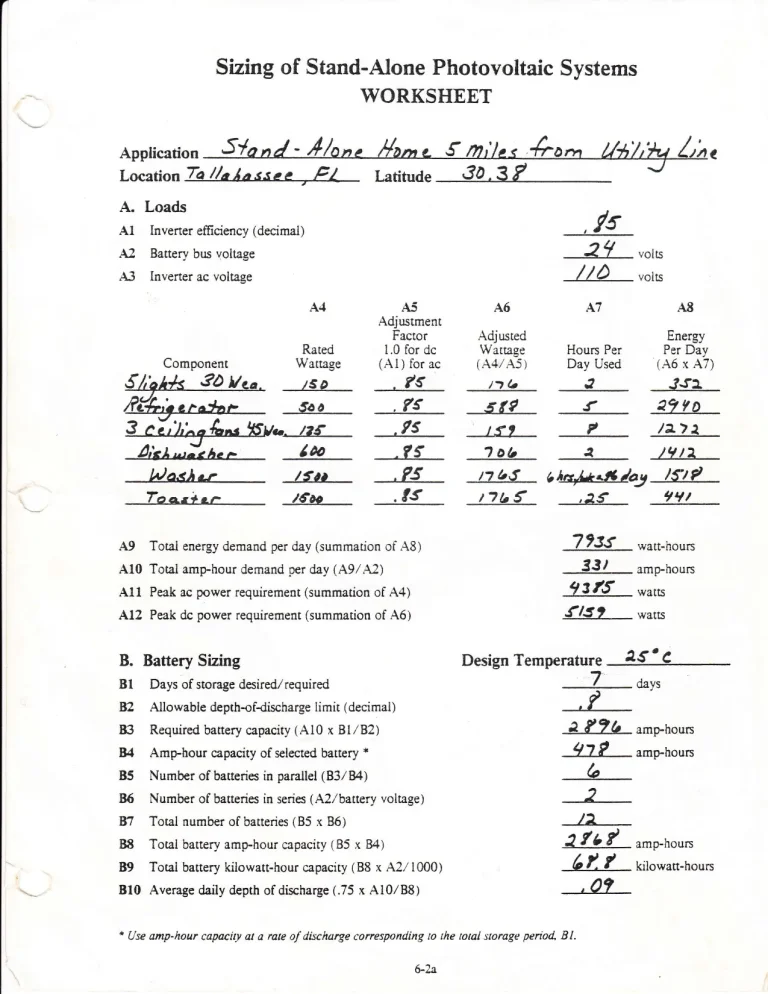 Sizing of Stand-Alone Photovoltaic Systems
WORKSHEET
Application Stand-Alone Home 5 miles from Utility Line
Location Tallahassee, FL Latitude 30.38
A. Loads
A1 Inverter efficiency (decimal) .85
A2 Battery bus voltage 24 volts
A3 Inverter ac voltage 110 volts
A4 A5 A6 A7 A8
Adjustment
Factor Adjusted Energy
Rated 1.0 for dc Wattage Hours Per Per Day
Component Wattage (A1) for ac (A4/A5) Day Used (A6 x A7)
5 lights 30 W ea. 150 .85 176 2 352
Refrigerator 500 .85 588 5 2940
3 ceiling fans 45 W ea. 135 .85 159 8 1272
Dishwasher 600 .85 706 2 1412
Washer 1500 .85 1765 6 hrs/wk=.86/day 1518
Toaster 1500 .85 1765 .25 441
A9 Total energy demand per day (summation of A8) 7935 watt-hours
A10 Total amp-hour demand per day (A9/A2) 331 amp-hours
A11 Peak ac power requirement (summation of A4) 4385 watts
A12 Peak dc power requirement (summation of A6) 5159 watts
B. Battery Sizing Design Temperature 25°C
B1 Days of storage desired/required 7 days
B2 Allowable depth-of-discharge limit (decimal) .8
B3 Required battery capacity (A10 x B1/B2) 2896 amp-hours
B4 Amp-hour capacity of selected battery * 478 amp-hours
B5 Number of batteries in parallel (B3/B4) 6
B6 Number of batteries in series (A2/battery voltage) 2
B7 Total number of batteries (B5 x B6) 12
B8 Total battery amp-hour capacity (B5 x B4) 2868 amp-hours
B9 Total battery kilowatt-hour capacity (B8 x A2/1000) 68.8 kilowatt-hours
B10 Average daily depth of discharge (.75 x A10/B8) .09
* Use amp-hour capacity at a rate of discharge corresponding to the total storage period, B1.
6-2a